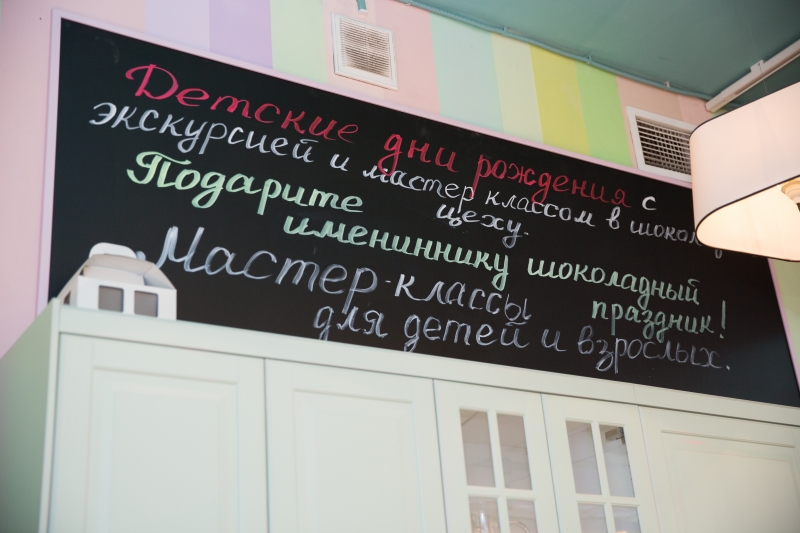 Детские дни рождения с
экскурсией и мастер классом в шокол
цеху.
Подарите
имениннику шоколадный
праздник!
Мастер-классы
для детей и взрослых.